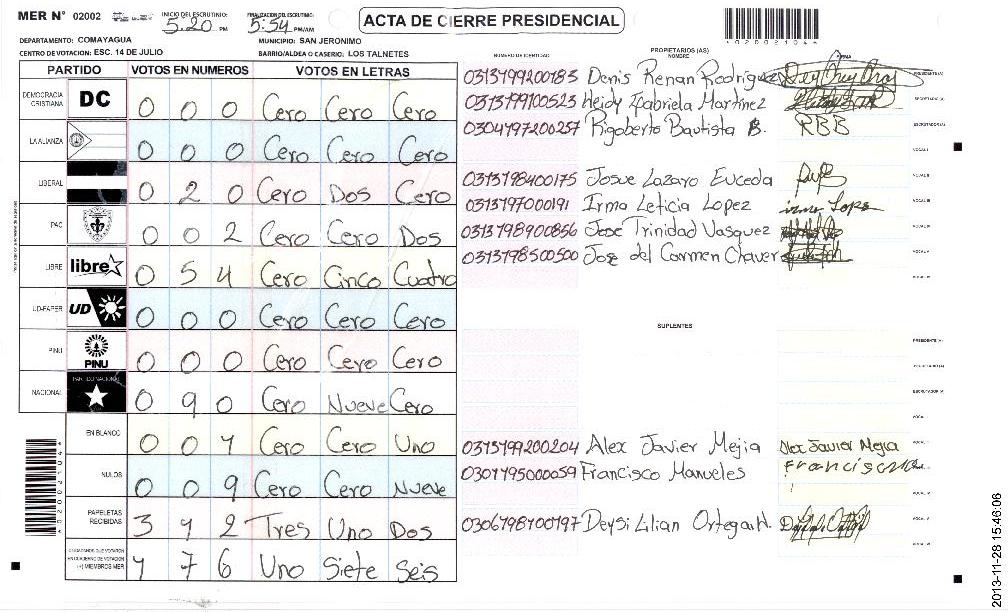 MER N° 02002 INICIO DEL ESCRUTINIO: 5:20 PM FINALIZACION DEL ESCRUTINIO: 5:54 PM/AM
ACTA DE CIERRE PRESIDENCIAL
DEPARTAMENTO: COMAYAGUA MUNICIPIO: SAN JERONIMO
CENTRO DE VOTACION: ESC. 14 DE JULIO BARRIO/ALDEA O CASERIO: LOS TALNETES
PARTIDO VOTOS EN NUMEROS VOTOS EN LETRAS
DEMOCRACIA CRISTIANA DC 0 0 0 Cero Cero Cero
LA ALIANZA 0 0 0 Cero Cero Cero
LIBERAL 0 2 0 Cero Dos Cero
PAC 0 0 2 Cero Cero Dos
LIBRE libre 0 5 4 Cero Cinco Cuatro
UD-FAPER UD 0 0 0 Cero Cero Cero
PINU PINU 0 0 0 Cero Cero Cero
NACIONAL PARTIDO NACIONAL 0 9 0 Cero Nueve Cero
EN BLANCO 0 0 1 Cero Cero Uno
NULOS 0 0 9 Cero Cero Nueve
PAPELETAS RECIBIDAS 3 1 2 Tres Uno Dos
CIUDADANOS QUE VOTARON EN CUADERNO DE VOTACION (+) MIEMBROS MER 1 7 6 Uno Siete Seis
NUMERO DE IDENTIDAD PROPIETARIOS (AS) NOMBRE FIRMA
0313199200183 Denis Renan Rodriguez PRESIDENTE(A)
0313199100523 Heidy Gabriela Martinez SECRETARIO(A)
0304197200257 Rigoberto Bautista B. RBB ESCRUTADOR(A)
VOCAL I
0313198400175 Josue Lazaro Euceda VOCAL II
0313197000191 Irma Leticia Lopez irma Lopz VOCAL III
0313198900856 Jose Trinidad Vasquez VOCAL IV
0313198500500 Jose del Carmen Chaver VOCAL V
VOCAL VI
SUPLENTES
PRESIDENTE (A)
SECRETARIO (A)
ESCRUTADOR (A)
VOCAL I
0313199200204 Alex Javier Mejia Alex Javier Mejia
0301195000059 Francisco Manueles Francisco
0306198100197 Deysi Lilian Ortega H. VOCAL V
VOCAL VI
2013-11-28 15:46:06